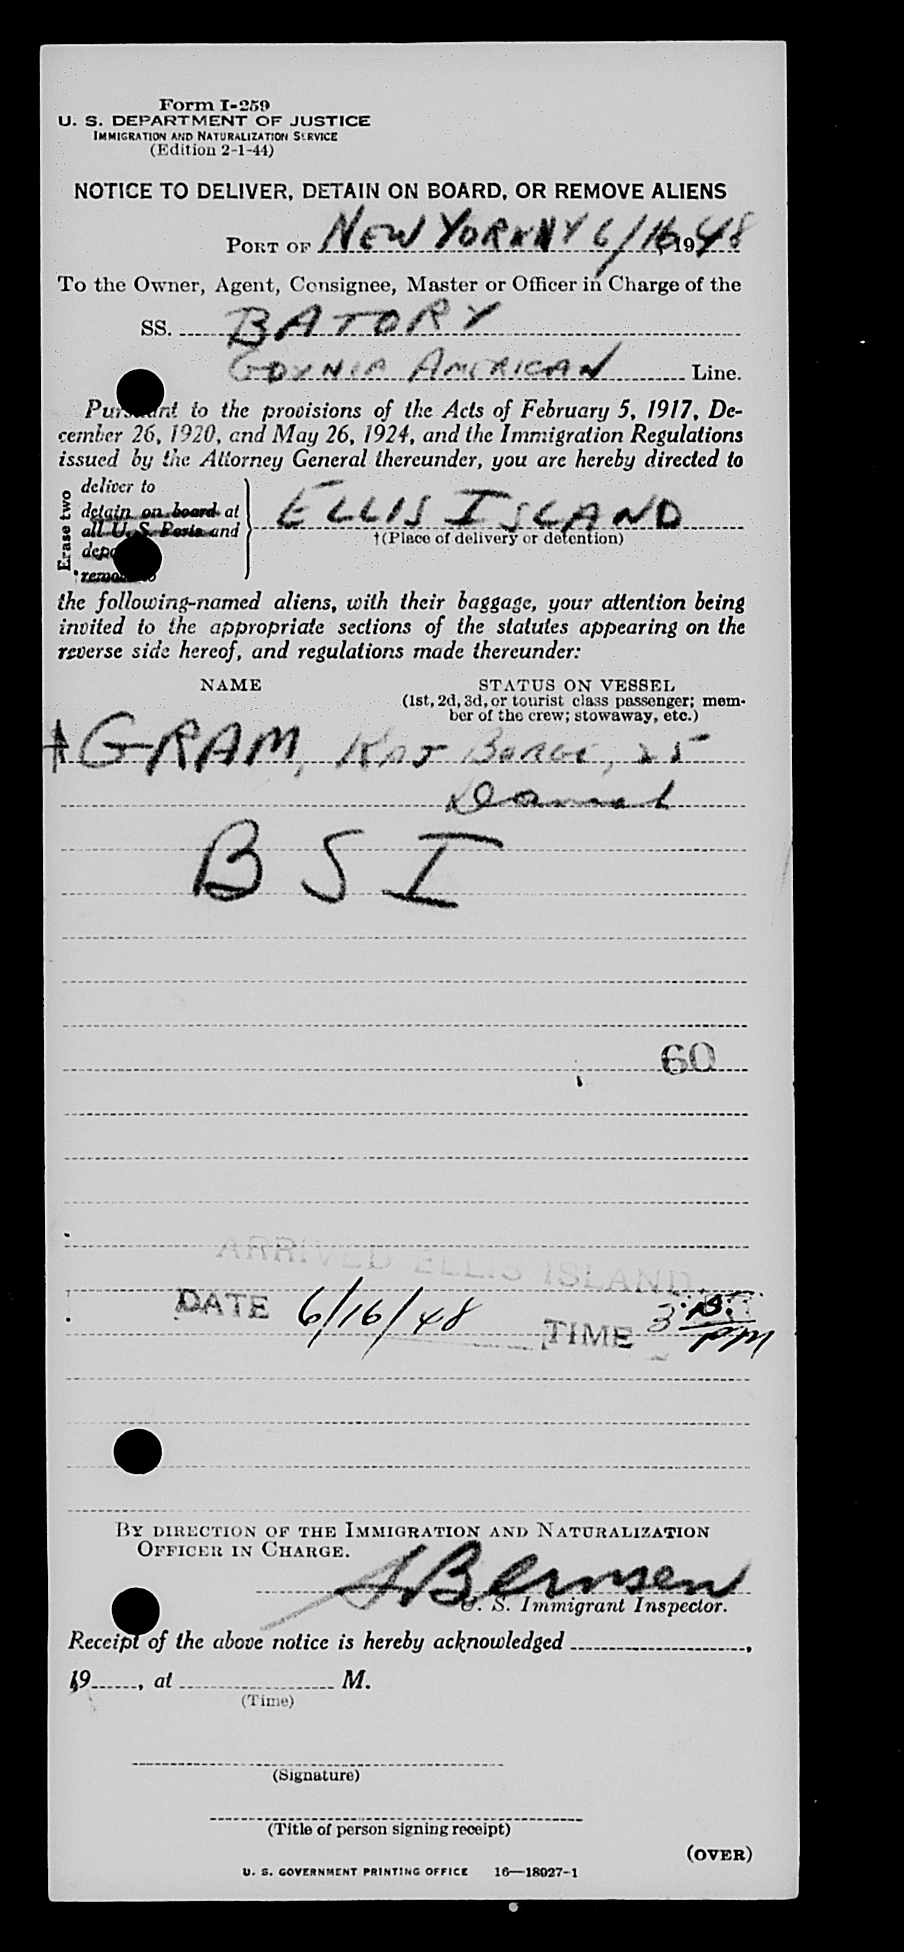 Form I-259
U. S. DEPARTMENT OF JUSTICE
IMMIGRATION AND NATURALIZATION SERVICE
(Edition 2-1-44)
NOTICE TO DELIVER, DETAIN ON BOARD, OR REMOVE ALIENS
PORT OF NEW YORK NY 6/16, 1948
To the Owner, Agent, Consignee, Master or Officer in Charge of the
SS. BATORY
GDYNIA AMERICAN Line.
Pursuant to the provisions of the Acts of February 5, 1917, De-
cember 26, 1920, and May 26, 1924, and the Immigration Regulations
issued by the Attorney General thereunder, you are hereby directed to
Erase two
deliver to
detain on board at
all U. S. Ports and
remove to
ELLIS ISLAND
†(Place of delivery or detention)
the following-named aliens, with their baggage, your attention being
invited to the appropriate sections of the statutes appearing on the
reverse side hereof, and regulations made thereunder:
NAME STATUS ON VESSEL
(1st, 2d, 3d, or tourist class passenger; mem-
ber of the crew; stowaway, etc.)
GRAM, KAJ BORGE, 25
Danish
B S I
60
ARRIVED ELLIS ISLAND
DATE 6/16/48 TIME 3 PM
BY DIRECTION OF THE IMMIGRATION AND NATURALIZATION
OFFICER IN CHARGE.
U. S. Immigrant Inspector.
Receipt of the above notice is hereby acknowledged ,
19 , at M.
(Time)
(Signature)
(Title of person signing receipt)
(OVER)
U. S. GOVERNMENT PRINTING OFFICE 16—18027-1